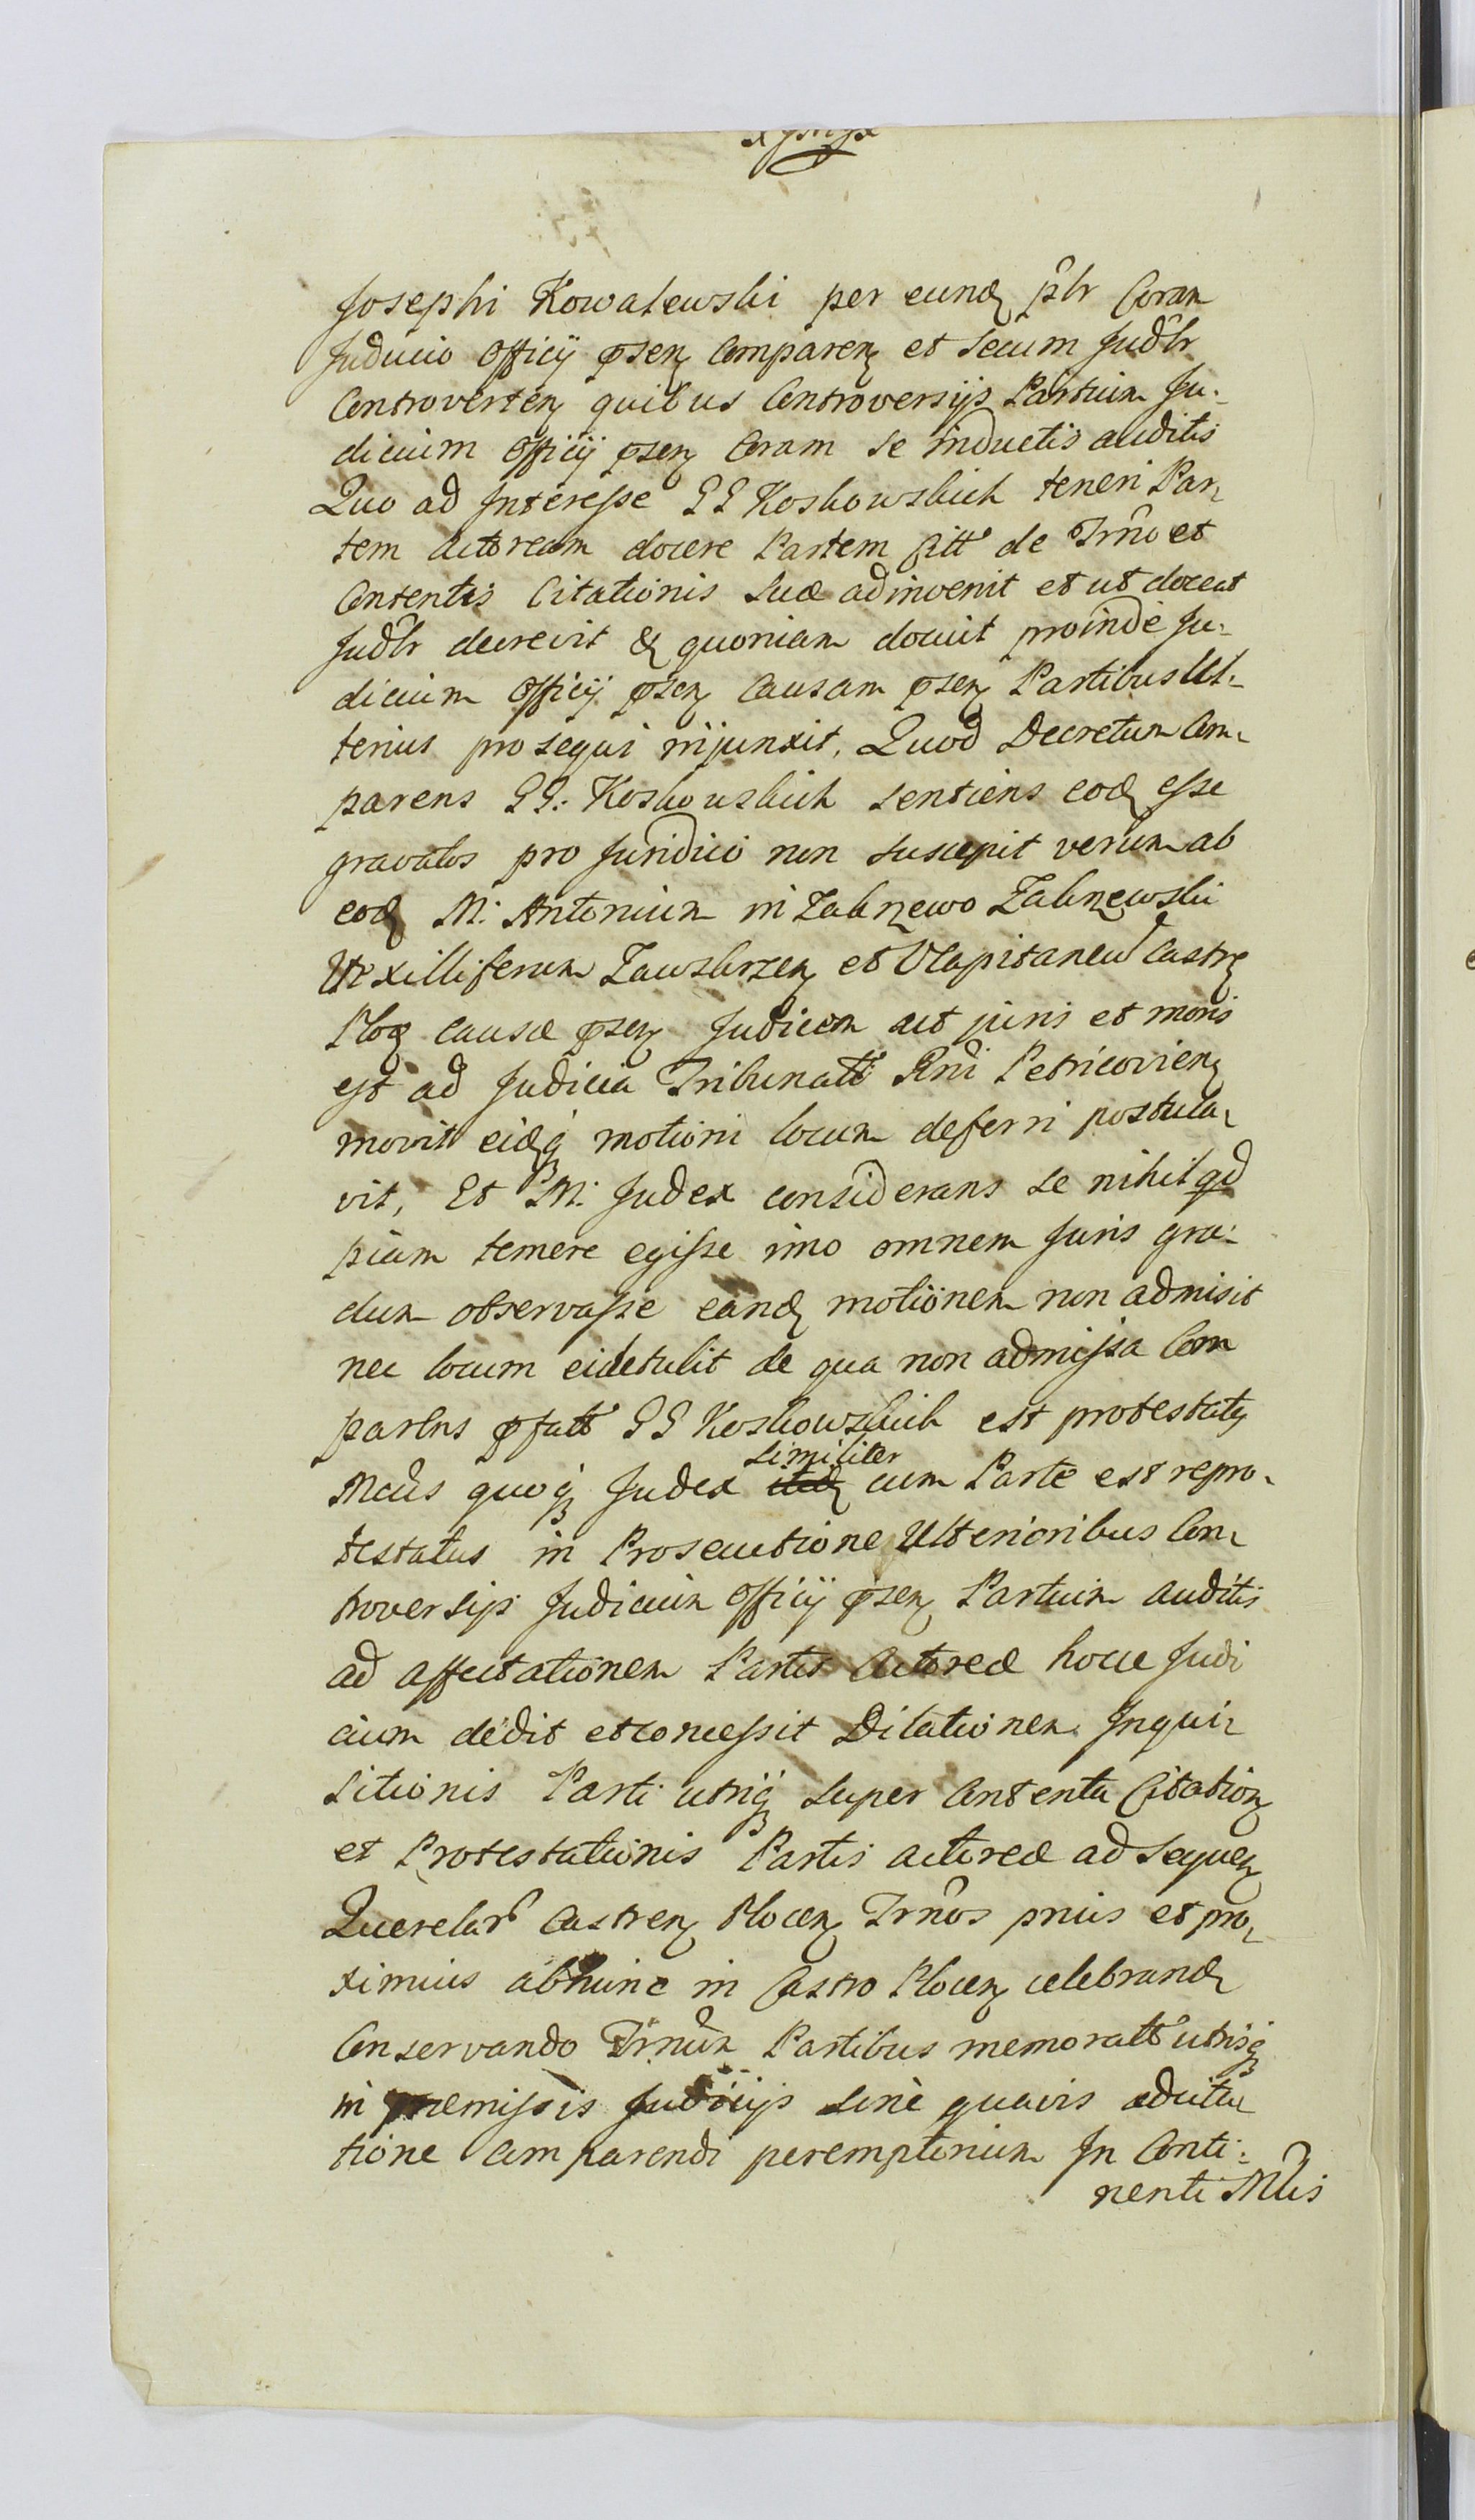 Josephi Kowalewski per eund plr Coram
Juducio Officij psen Comparen et Secum Judlr
Controverten quibus Controversijs Partium Ju-
dicium Officij psen Coram se inductis auditis
Quo ad Interesse GG Koskowskich teneri Par-
tem Actoream docere Partem Citt de Trno et
Contentis Citationis Suæ adinvenit et ut doceat
Judlr decrevit & quoniam docuit proinde Ju-
dicium Officij psen Causam psen Partibus Ul-
terius prosequi injunxit, Quod Decretum Com-
parens GG: Koskowskich sentiens eod esse
gravatos pro Juridico non suscepit verum ab
eod M: Antonium in Zabnewo Zabnewski
Vexilliferum Zawskrzen et VCapitaneu Castre
Plog causæ psen Judicem aut juris et moris
est ad Judicia Tribunatt Rni Petricovien
movit eidq motioni locum deferri postula-
vit, Et PM: Judex considerans se nihil qd
piam temere egisse imo omnem Juris gra-
dum observasse eand motionem non admisit
nec locum ei detulit de qua non admissa Com
parens pfatt GG Koskowskich est protestaty
similiter
Mcus quoq Judex itid cum Parte est repro-
testatus in Prosecutione Ulterioribus Con-
troversijs Judicium Officij psen Partium auditis
ad affectationem Partis Actoreæ hocce Judi
cium dedit et concessit Dilationem Inqui-
sitionis Parti utriq super Contenta Citation
et Protestationis Partis actoreæ ad sequen
Querelar Castren Plocen Trnos prius et pro-
ximius abhinc in Castro Plocen celebrand
Conservando Trnum Partibus memoratt utrisq
in præmissis Judicijs sine quavis adcita-
tione comparendi peremptorium In Conti-
nenti Mlis